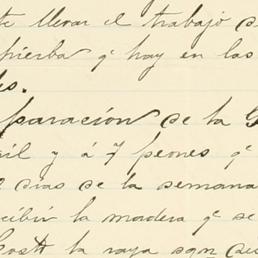 te llevar el trabajo de
hierba q hay en las
es.
paración de la G
il y á 7 peones q
días de la semana
cibir la madera q se
la raya son